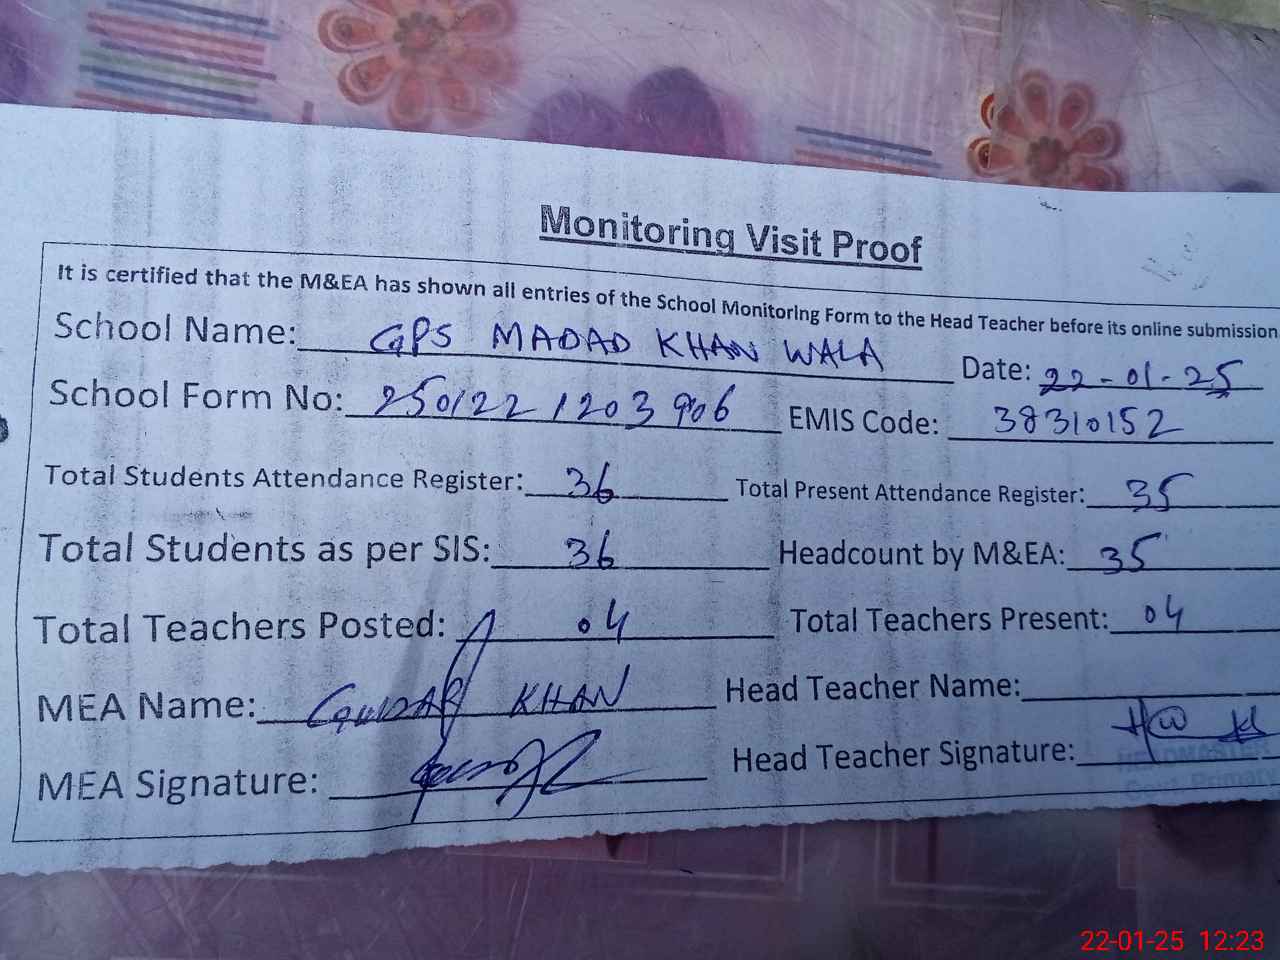 Monitoring Visit Proof
It is certified that the M&EA has shown all entries of the School Monitoring Form to the Head Teacher before its online submission
School Name: GPS MADAD KHAN WALA Date: 22-01-25
School Form No: 250122 1203 906 EMIS Code: 38310152
Total Students Attendance Register: 36 Total Present Attendance Register: 35
Total Students as per SIS: 36 Headcount by M&EA: 35
Total Teachers Posted: 04 Total Teachers Present: 04
MEA Name: KHAN Head Teacher Name:
MEA Signature: Head Teacher Signature:
HEADMASTER
Govt. Primary
22-01-25 12:23